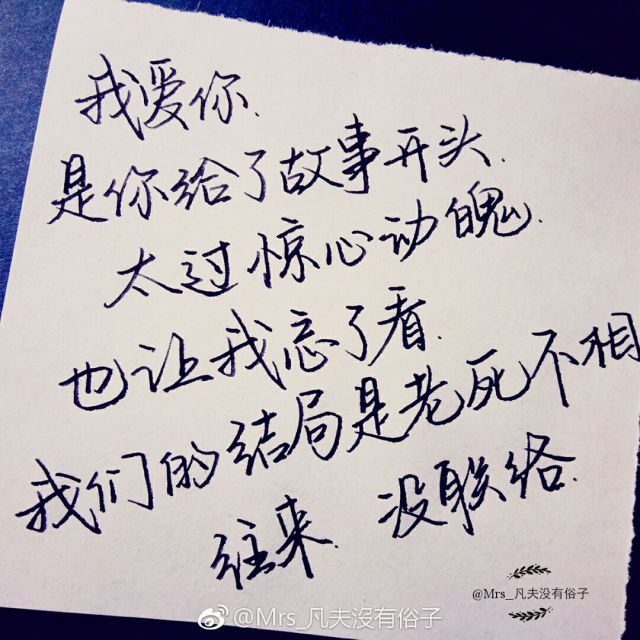 我爱你.
是你给了故事开头.
太过惊心动魄.
也让我忘了看.
我们的结局是老死不相
往来. 没联络.
@Mrs_凡夫没有俗子
@Mrs_凡夫沒有俗子